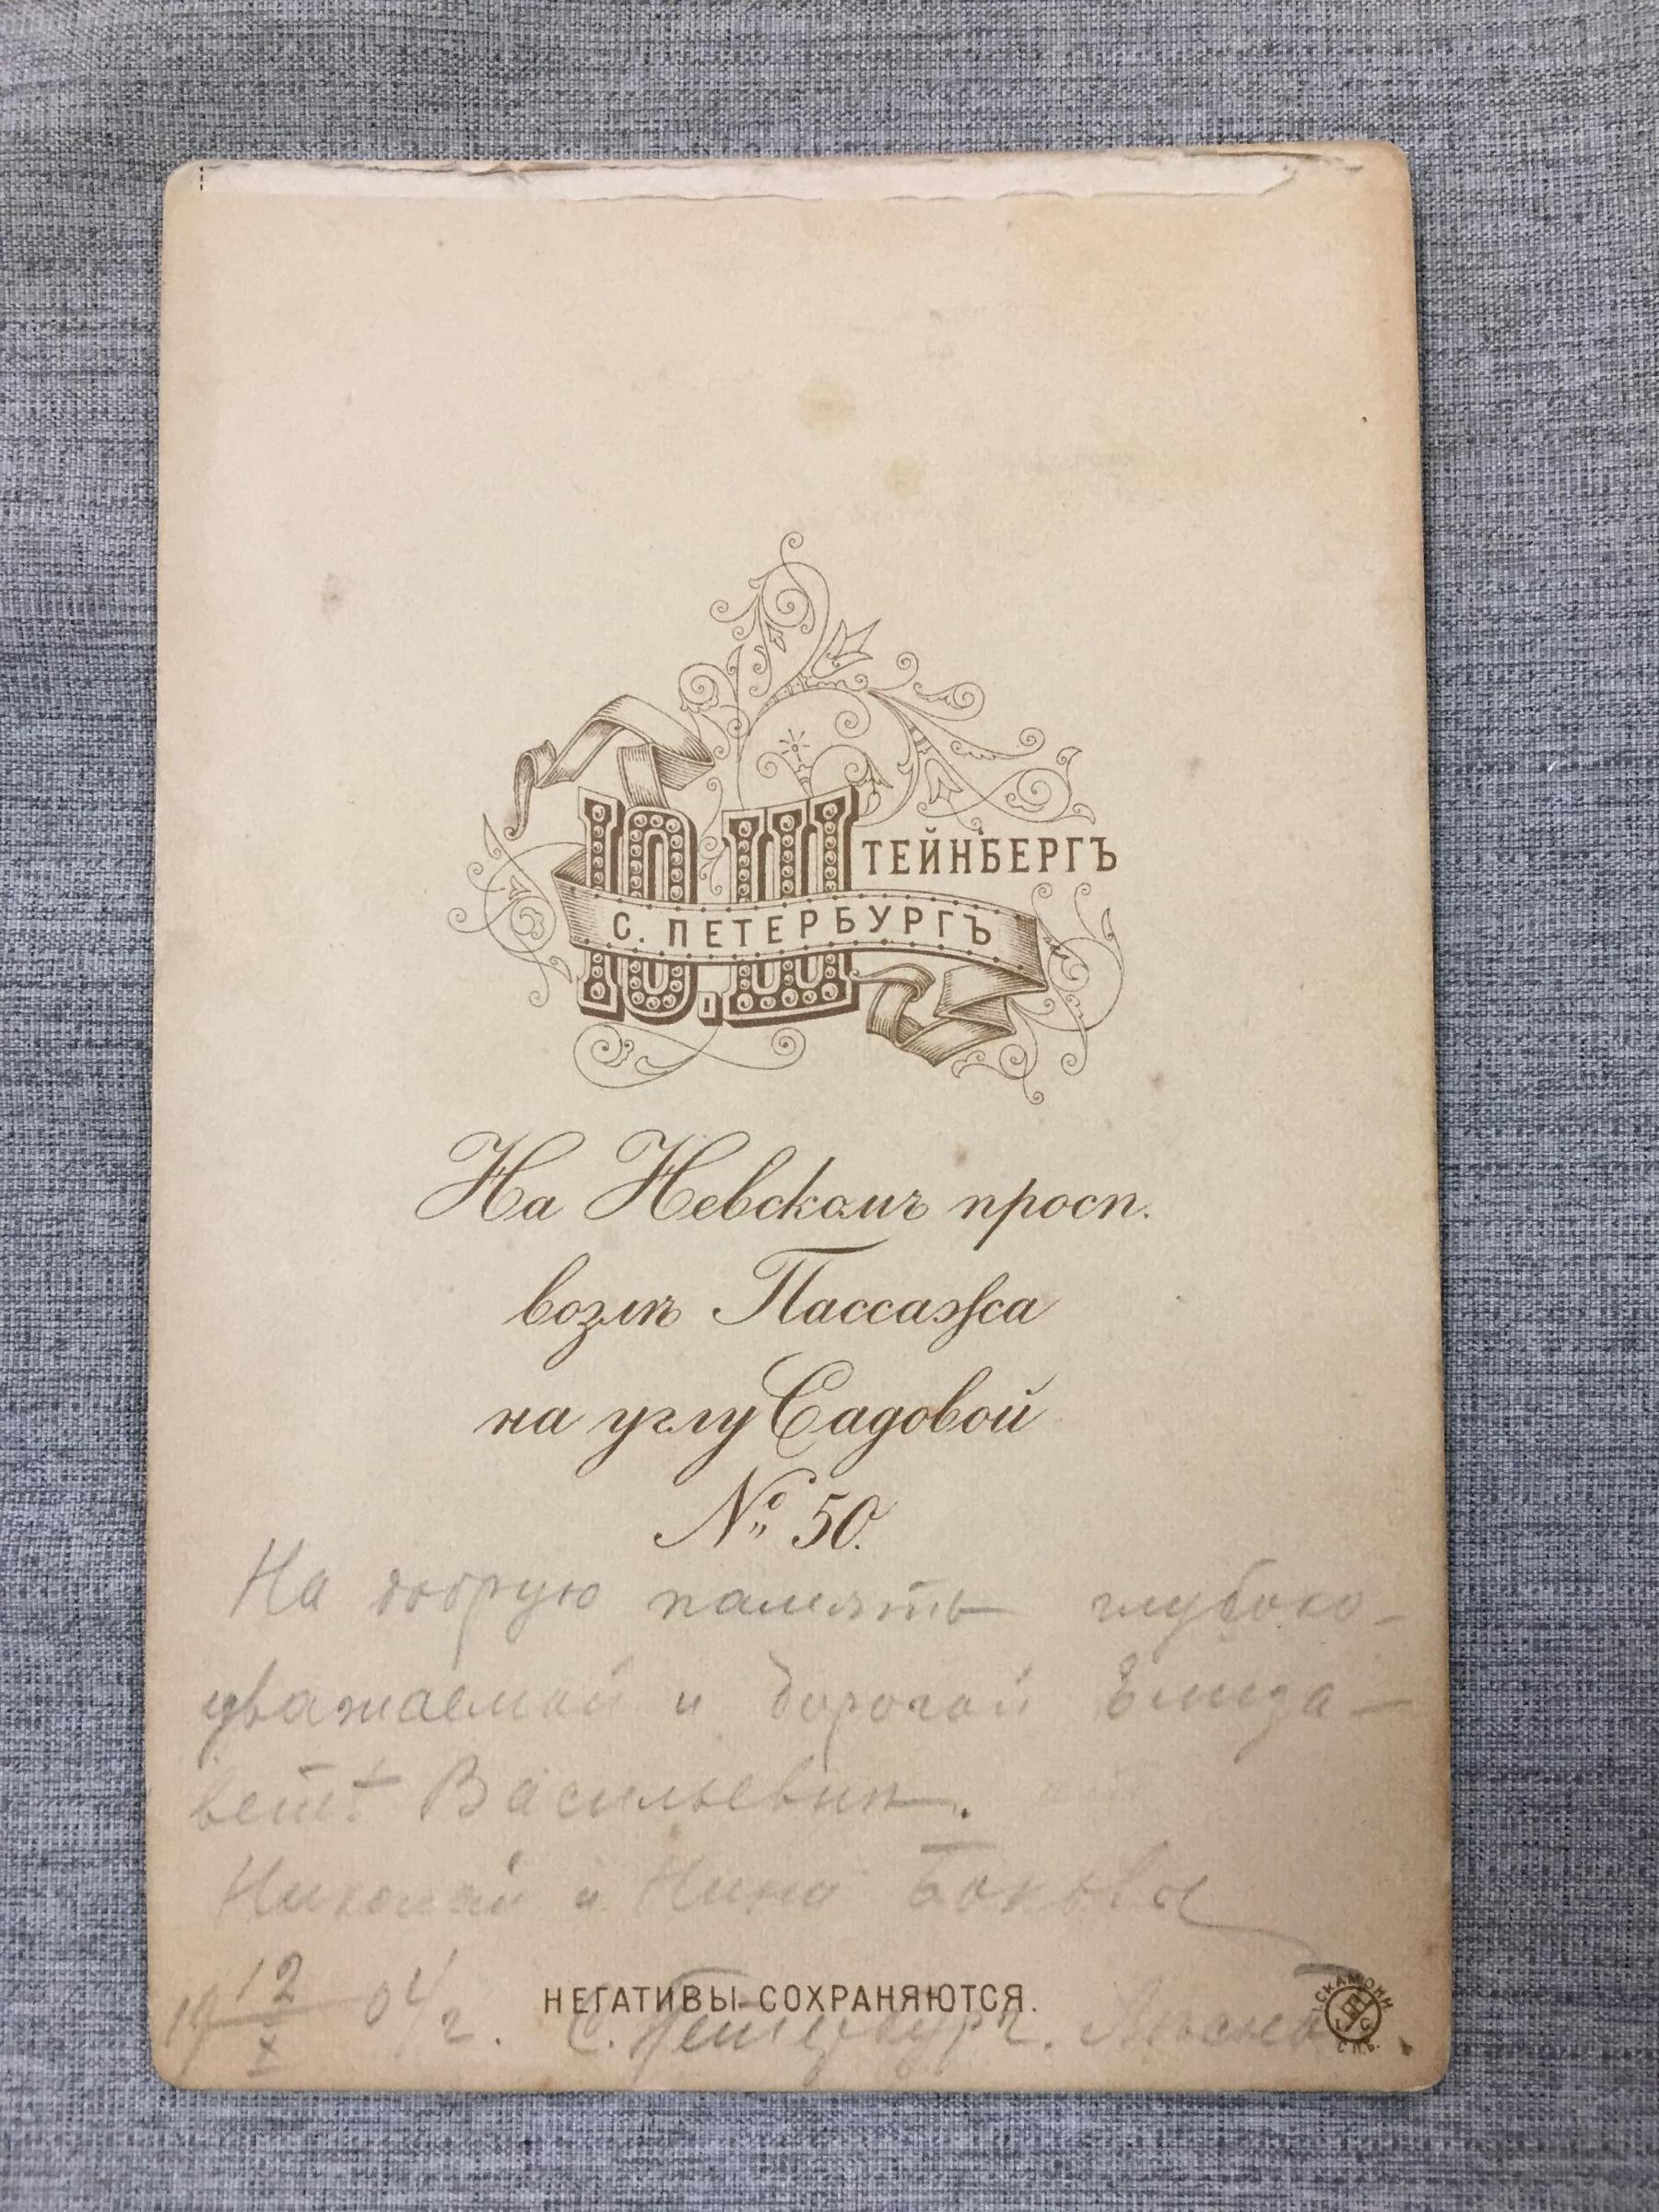 Ю.ШТЕЙНБЕРГЪ
С. ПЕТЕРБУРГЪ
На Невскомъ просп.
возлѣ Пассажа
на углу Садовой
№ 50.
На добрую память глубоко-
уважаемой и дорогой Елиза-
ветѣ Васильевнѣ.
Николай и Нина Боковы
19 12/X 04 г. С. Петербургъ.
НЕГАТИВЫ СОХРАНЯЮТСЯ.
СКАМОНИ
С.П.Б.